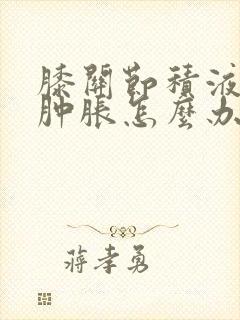 膝關節積液
肿脹怎麼办
蔣孝勇